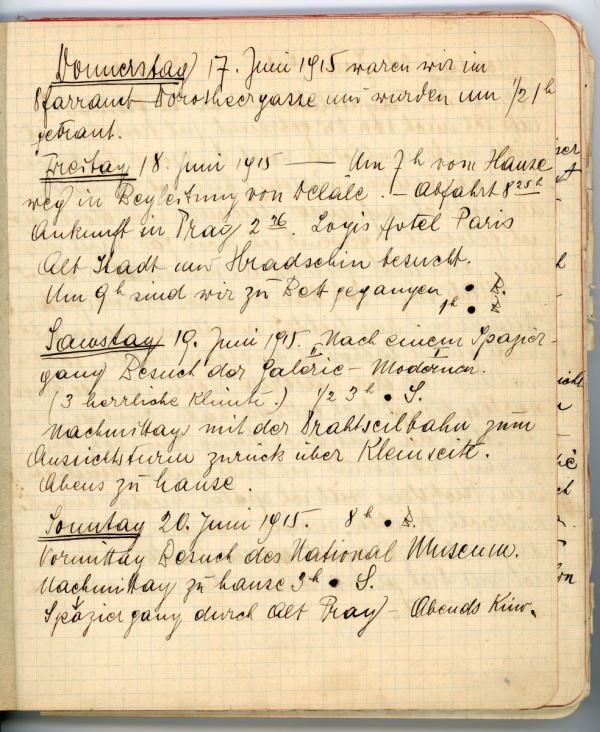 Donnerstag 17. Juni 1915 waren wir im
Pfarramt Dorotheergasse und wurden um 1/2 1 h
getraut.
Freitag 18. Juni 1915 — Um 7 h vom Hause
weg in Begleitung von Delále. – Abfahrt 8 25 h
Ankunft in Prag 2 36. Logis Hotel Paris
Alt Stadt und Hradschin besucht.
Um 9 h sind wir zu Bett gegangen •
1 h •
Samstag 19. Juni 1915. Nach einem Spazier-
gang Besuch der Galerie – Modernen.
II I
(3 herrliche Klimte.) 1/2 3 h • S.
Nachmittags mit der Drahtseilbahn zum
Aussichtsturm zurück über Kleinseite.
Abens zu hause.
Sonntag 20. Juni 1915. 8 h • S.
Vormittag Besuch des National Museum.
Nachmittag zu hause 3 h • S.
Spaziergang durch Alt Prag – Abends Kino.